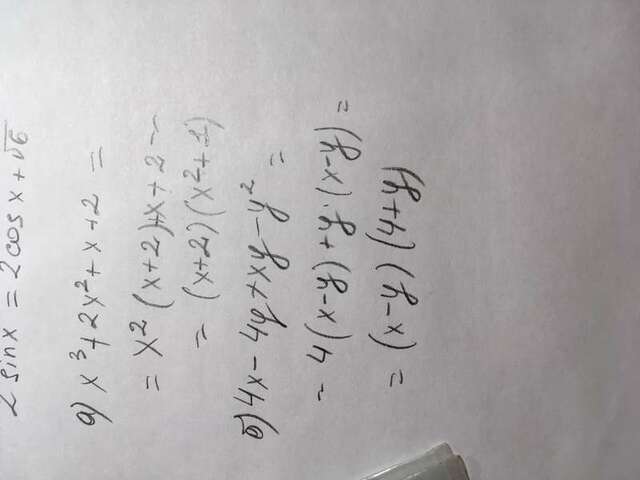 2 sin x = 2 cos x + √6
а) x³ + 2x² + x + 2 =
= x² (x+2) + x + 2 =
= (x+2) (x² + 1)
б) 4x - 4y + xy - y² =
= 4 (x-y) + y · (x-y) =
= (x-y) (4+y)